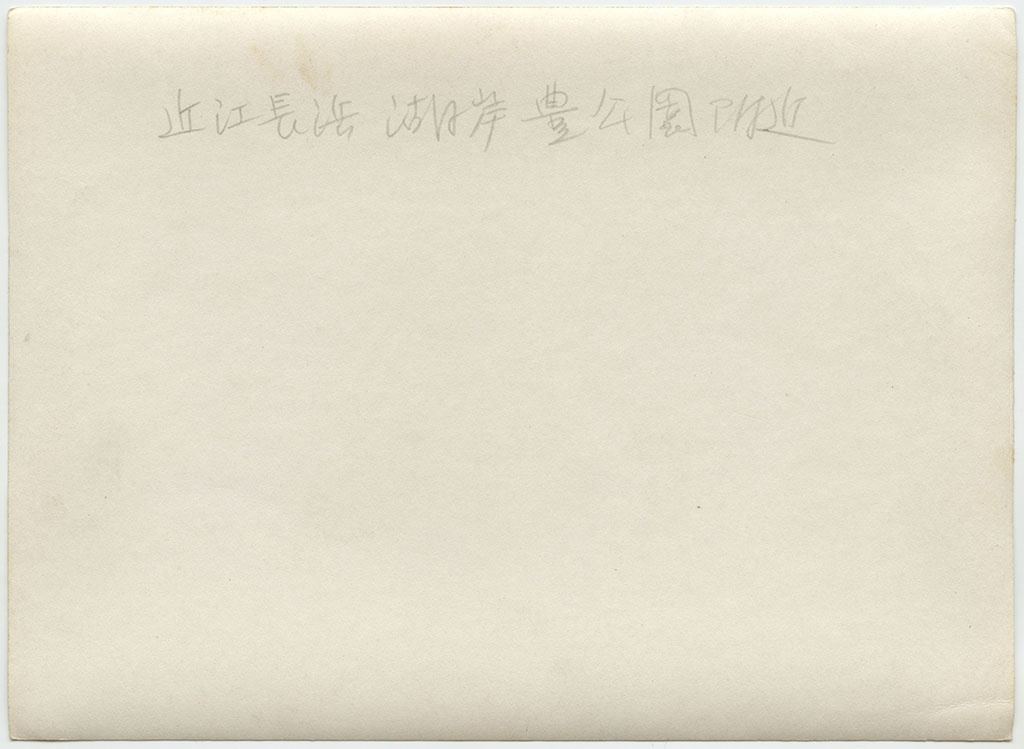 近江長浜 湖岸 豊公園附近